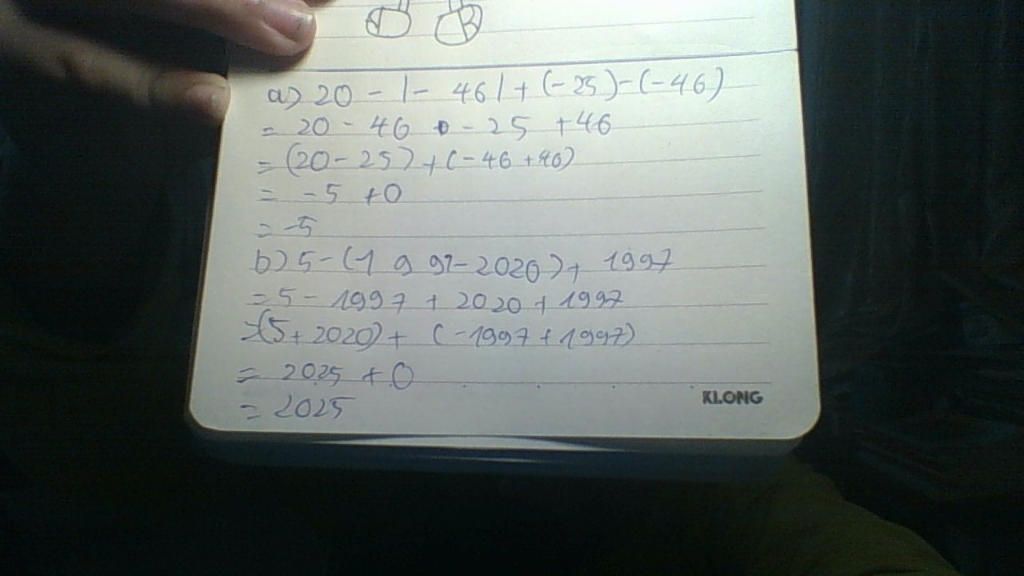 a) 20 - |- 46| + (-25) - (-46)
= 20 - 46 - 25 + 46
= (20 - 25) + (-46 + 46)
= -5 + 0
= -5
b) 5 - (1997 - 2020) + 1997
= 5 - 1997 + 2020 + 1997
= (5 + 2020) + (-1997 + 1997)
= 2025 + 0
= 2025
KLONG